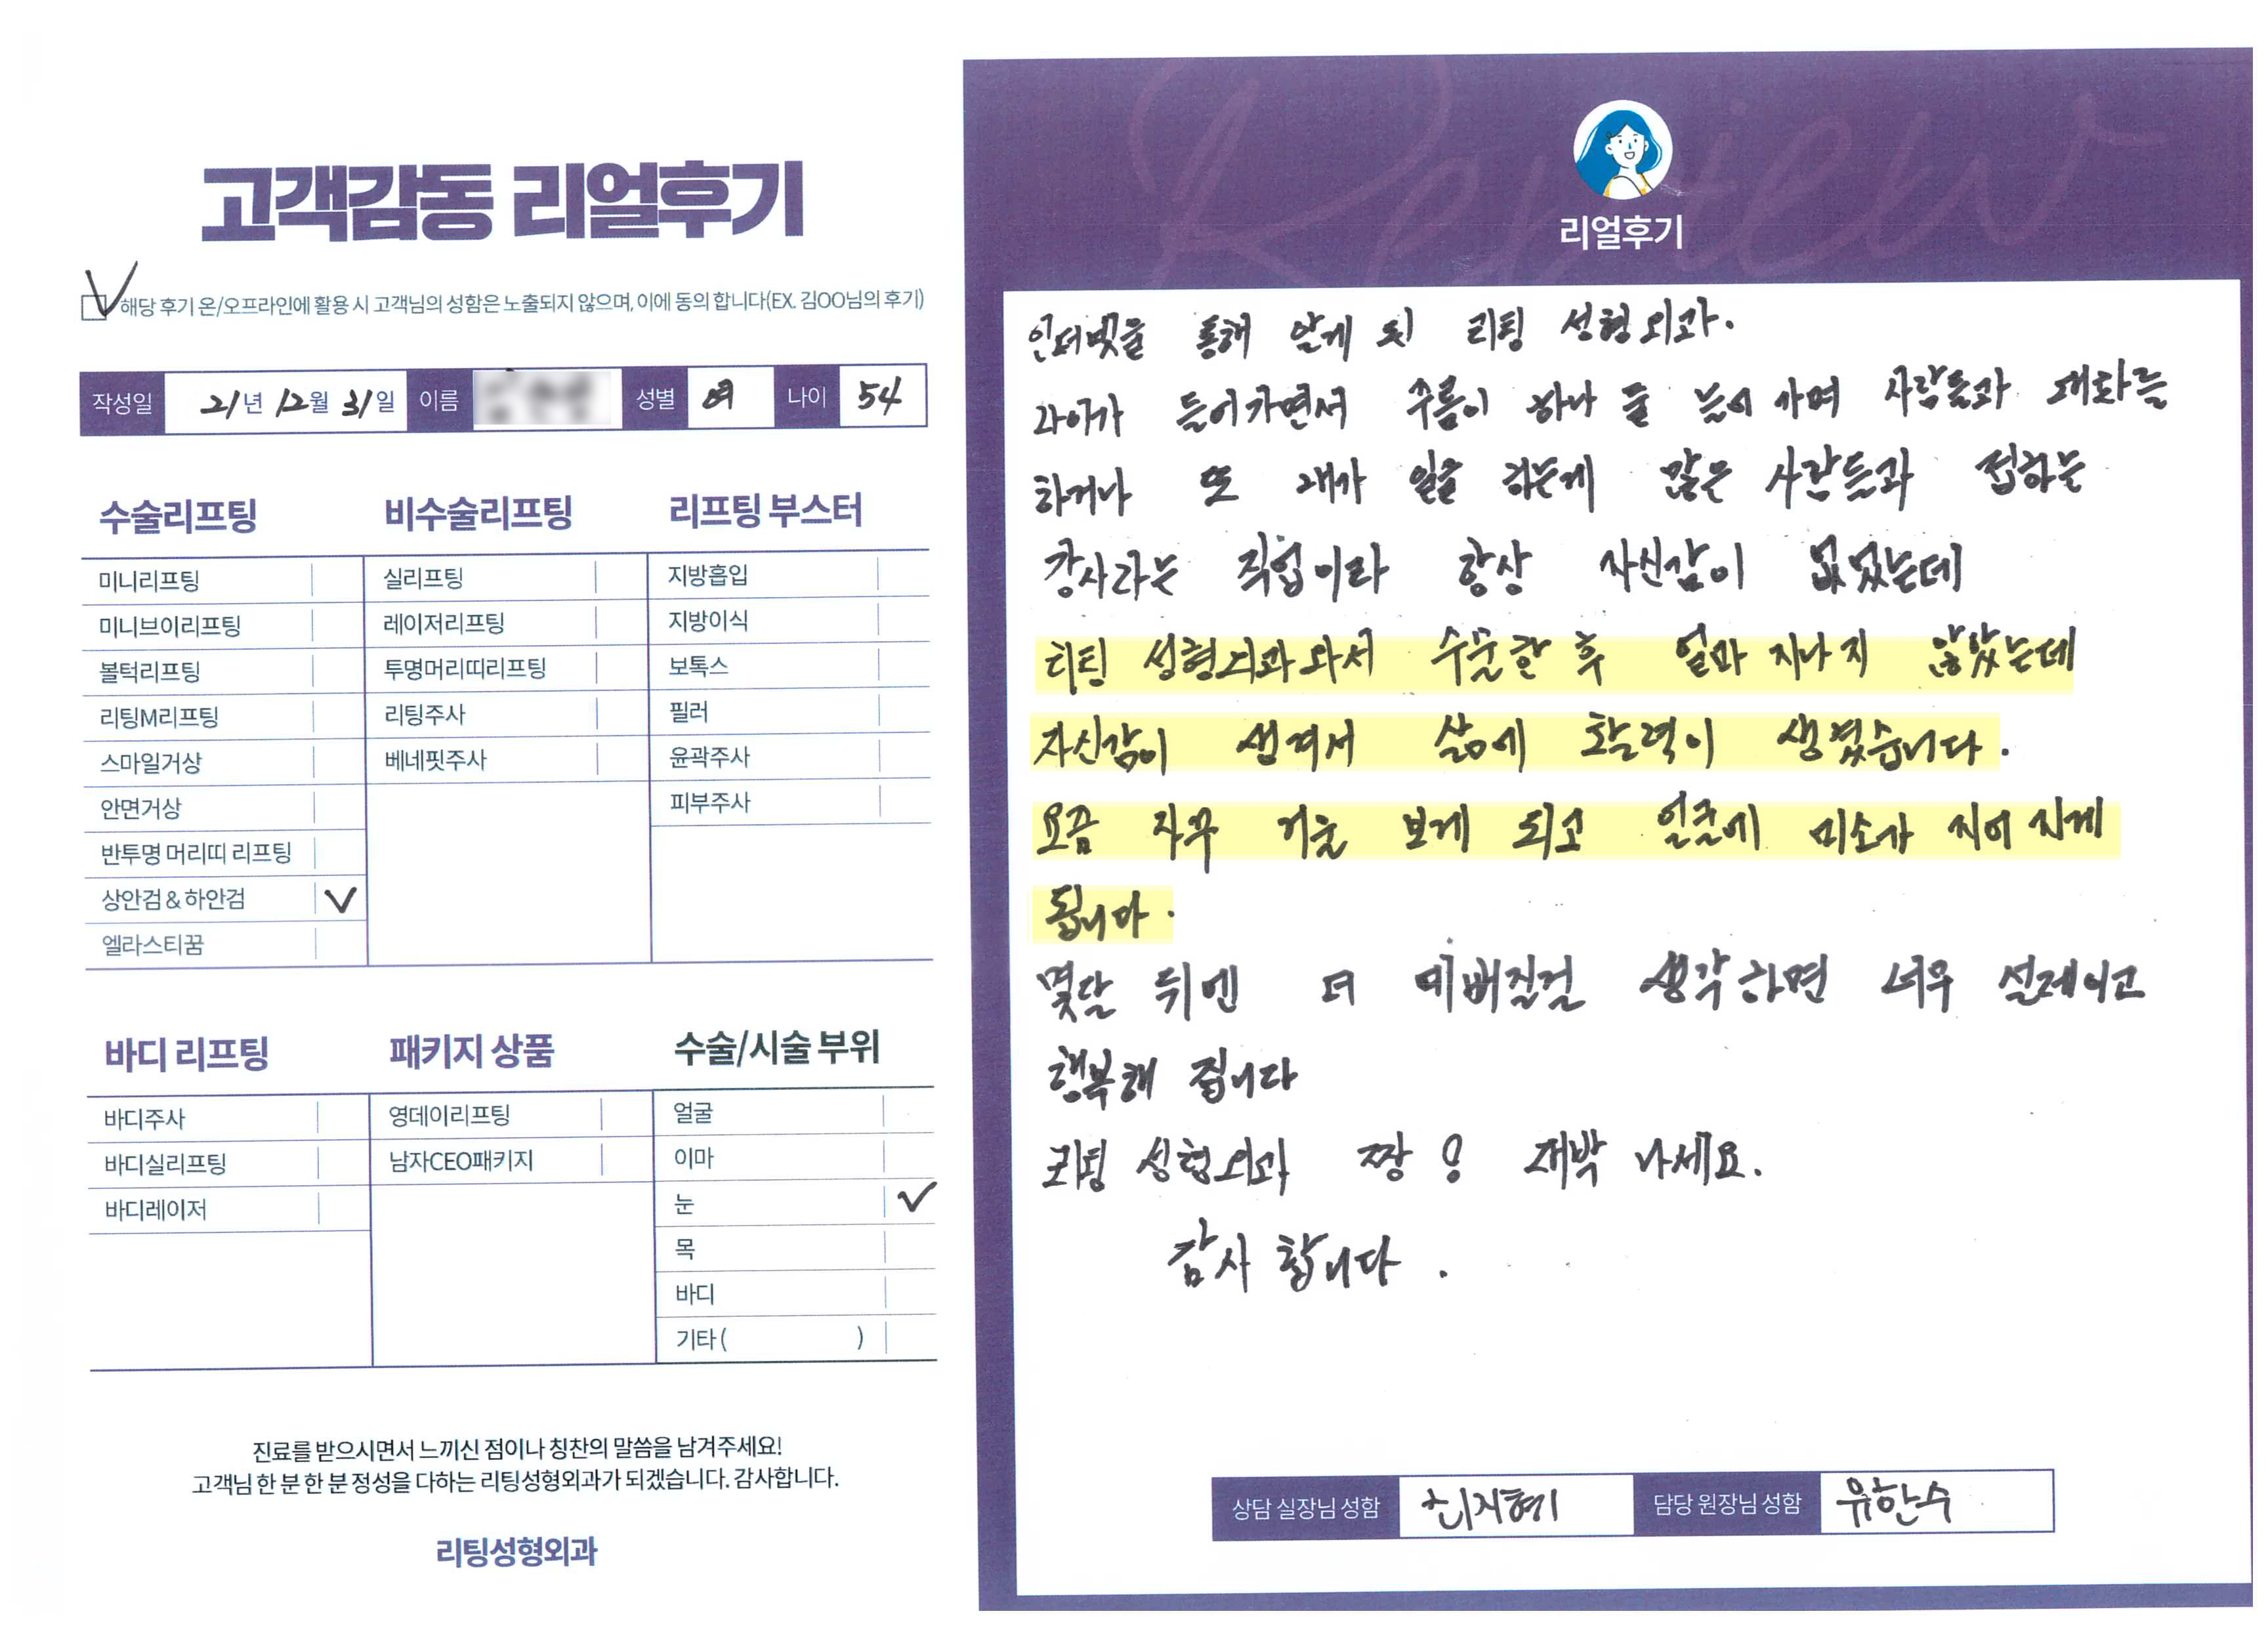 고객감동 리얼후기
해당 후기 온/오프라인에 활용 시 고객님의 성함은 노출되지 않으며, 이에 동의 합니다(EX. 김OO님의 후기)
작성일 21년 12월 31일 이름 성별 여 나이 54
수술리프팅
미니리프팅
미니브이리프팅
볼턱리프팅
리팅M리프팅
스마일거상
안면거상
반투명 머리띠 리프팅
상안검 & 하안검
엘라스티꿈
비수술리프팅
실리프팅
레이저리프팅
투명머리띠리프팅
리팅주사
베네핏주사
리프팅 부스터
지방흡입
지방이식
보톡스
필러
윤곽주사
피부주사
바디 리프팅
바디주사
바디실리프팅
바디레이저
패키지 상품
영데이리프팅
남자CEO패키지
수술/시술 부위
얼굴
이마
눈
목
바디
기타 ( )
진료를 받으시면서 느끼신 점이나 칭찬의 말씀을 남겨주세요!
고객님 한 분 한 분 정성을 다하는 리팅성형외과가 되겠습니다. 감사합니다.
리팅성형외과
Review
리얼후기
인터넷을 통해 알게 된 리팅 성형외과.
나이가 들어가면서 주름이 하나 둘 늘어 가며 사람들과 대화를
하거나 또 내가 일을 하는게 많은 사람들과 접하는
강사라는 직업이라 항상 자신감이 없었는데
리팅 성형외과와서 수술한 후 얼마 지나지 않았는데
자신감이 생겨서 삶에 활력이 생겼습니다.
요즘 자꾸 거울 보게 되고 얼굴에 미소가 지어 지게
됩니다.
몇달 뒤엔 더 예뻐질걸 생각하면 너무 설레이고
행복해 집니다
리팅 성형외과 짱! 대박 나세요.
감사 합니다.
상담 실장님 성함 담당 원장님 성함 유한수